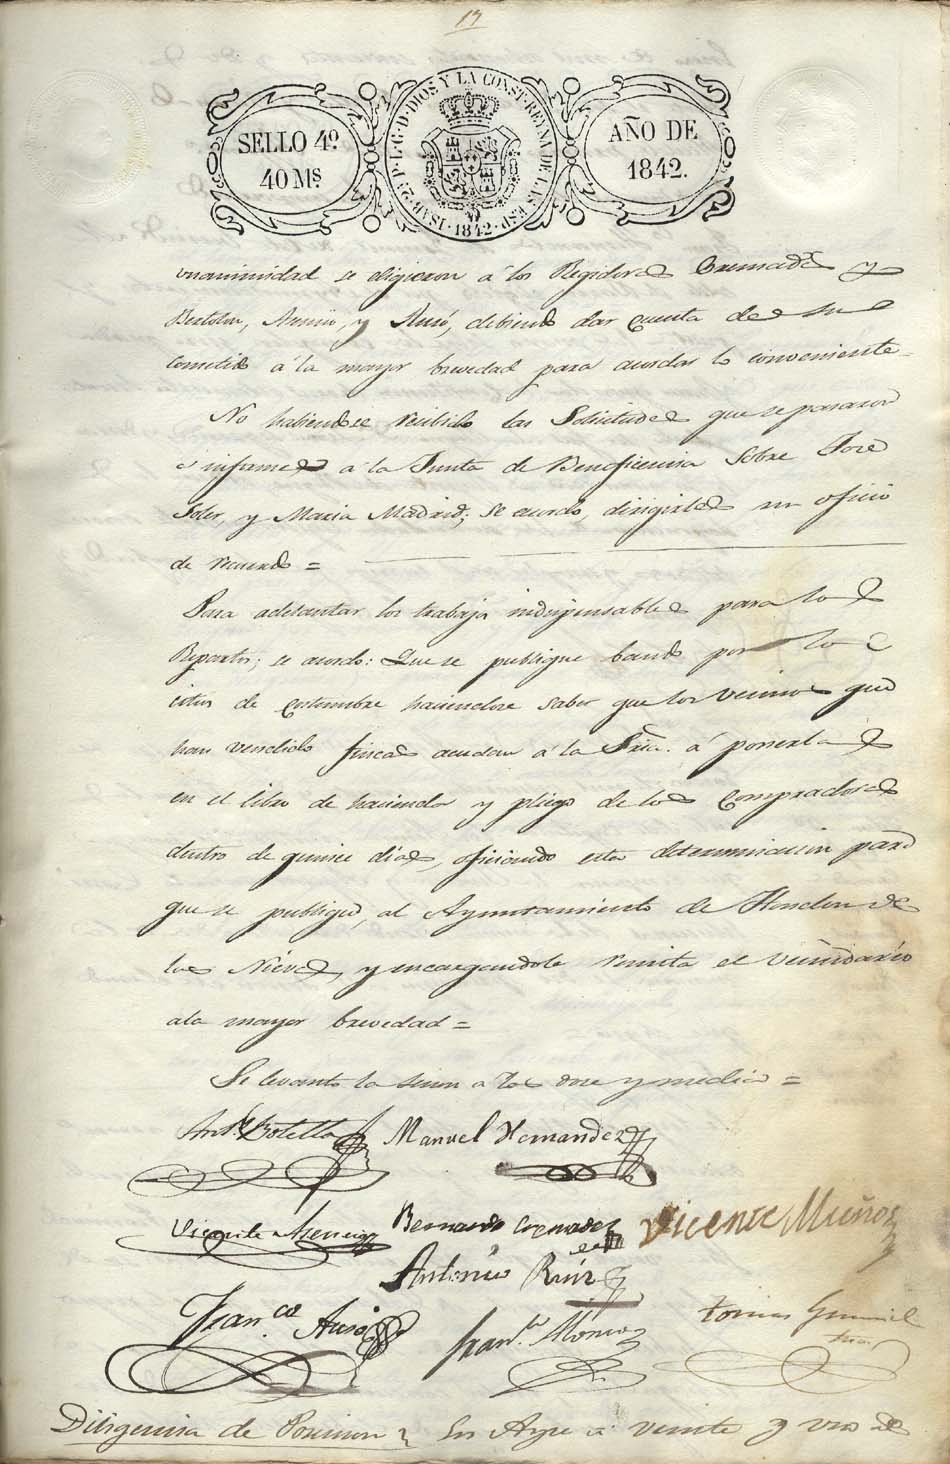 13
SELLO 4º
40 Ms.
ISAB. 2ª P. L. G. D. DIOS Y LA CONST. REYNA DE LAS ESP. 1842
AÑO DE
1842.
unanimidad se eligieron á los Regidores Cremades y
Bertolin, Asencio, y Ausó, debiendo dar cuenta de su
cometido á la mayor brevedad para acordar lo conveniente=
No habiendose recibido las Solicitudes que se pasaron
á informes á la Junta de Beneficencia Sobre Jose
Soler, y Maria Madrid; se acordo, dirigirles un oficio
de recuerdo =
Para adelantar los trabajos indispensables para los
Repartos; se acordo: Que se publique bando por los
sitios de costumbre haciendose saber que los vecinos que
han vendido fincas acudan á la Sria. á ponerlas
en el libro de hacienda y pliego de los compradores
dentro de quince dias, oficiando esta determinacion para
que se publique, al Ayuntamiento de Hondon de
las Nieves, y encargandole remita el vecindario
a la mayor brevedad =
Se levantó la sesion a las once y media =
Anto. Botella Manuel Hernandez
Vicente Asencio Bernardo Cremades Vicente Muñoz
Antonio Ruiz
Fran.co Ausó Fran.co Tomas
Diligencia de Posesion En Aspe á veinte y uno de